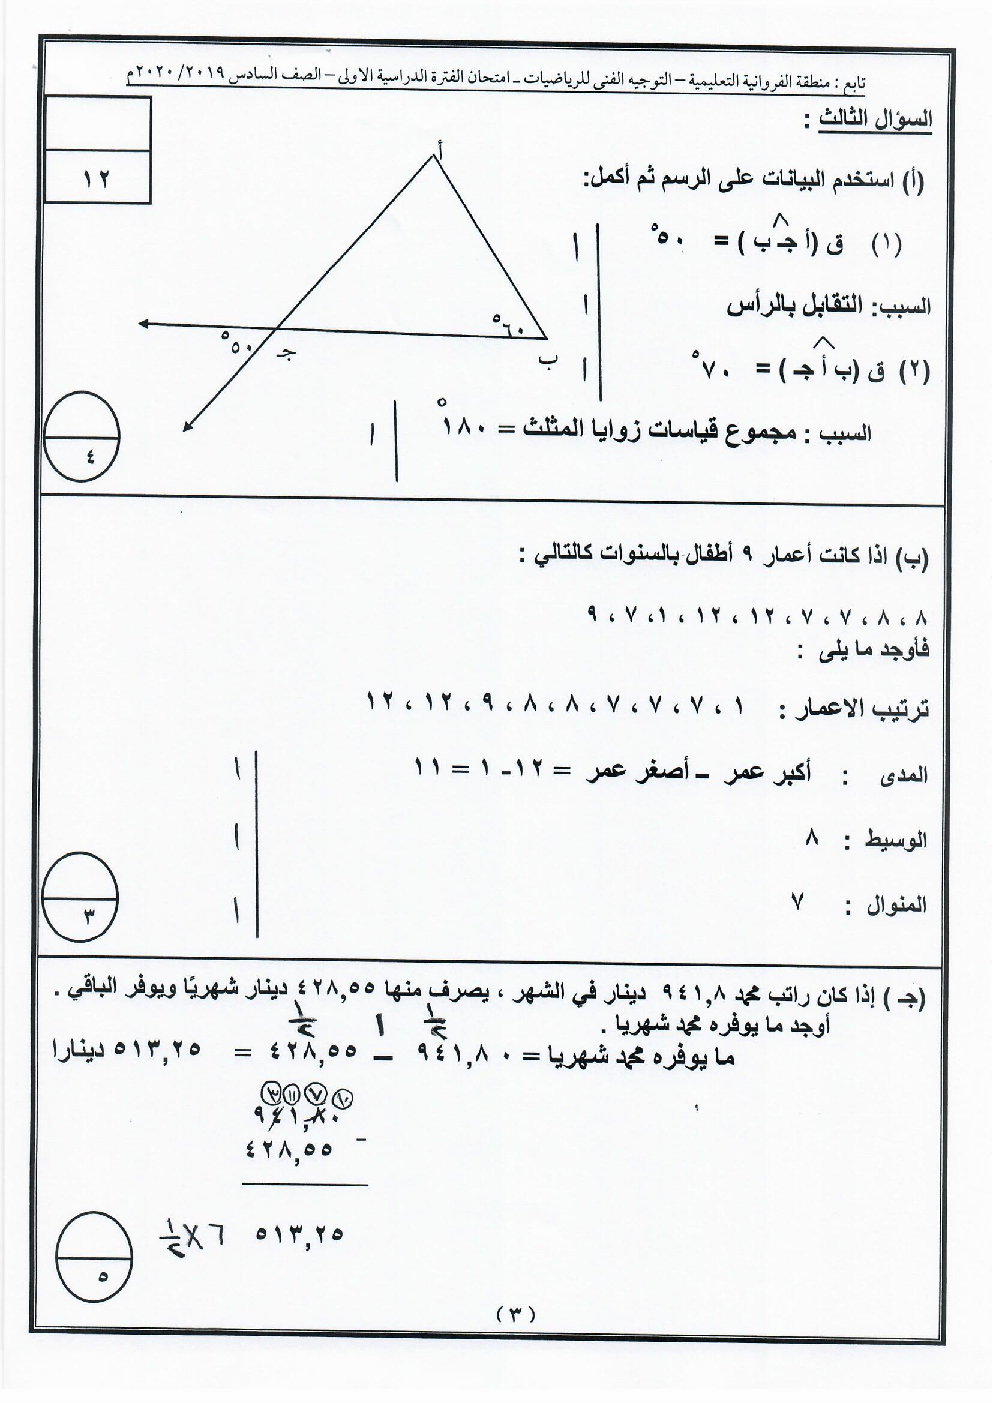 تابع : منطقة الفروانية التعليمية – التوجيه الفني للرياضيات – امتحان الفترة الدراسية الاولى – الصف السادس ٢٠١٩/٢٠٢٠م
السؤال الثالث :
١٢
(أ) استخدم البيانات على الرسم ثم أكمل:
(١) ق (أ جـ ب) = ٥٠° ١
السبب: التقابل بالرأس ١
(٢) ق (ب أ جـ) = ٧٠° ١
السبب : مجموع قياسات زوايا المثلث = ١٨٠° ١
أ
٦٠°
ب
جـ
٥٠°
٤
(ب) اذا كانت أعمار ٩ أطفال بالسنوات كالتالي :
٨ ، ٨ ، ٧ ، ٧ ، ١٢ ، ١٢ ، ١، ٧ ، ٩
فأوجد ما يلى :
ترتيب الاعمار : ١ ، ٧ ، ٧ ، ٧ ، ٨ ، ٨ ، ٩ ، ١٢ ، ١٢
المدى : أكبر عمر – أصغر عمر = ١٢- ١ = ١١ ١
الوسيط : ٨ ١
المنوال : ٧ ١
٣
(جـ) إذا كان راتب محمد ٩٤١,٨ دينار في الشهر ، يصرف منها ٤٢٨,٥٥ دينار شهريًا ويوفر الباقي .
أوجد ما يوفره محمد شهريا . ١/٢ ١ ١/٢
ما يوفره محمد شهريا = ٩٤١,٨٠ – ٤٢٨,٥٥ = ٥١٣,٢٥ دينارا
٣ ١١ ٧ ١٠
٩٤١,٨٠
٤٢٨,٥٥ –
٥١٣,٢٥ ٦ × ١/٢
٥
(٣)